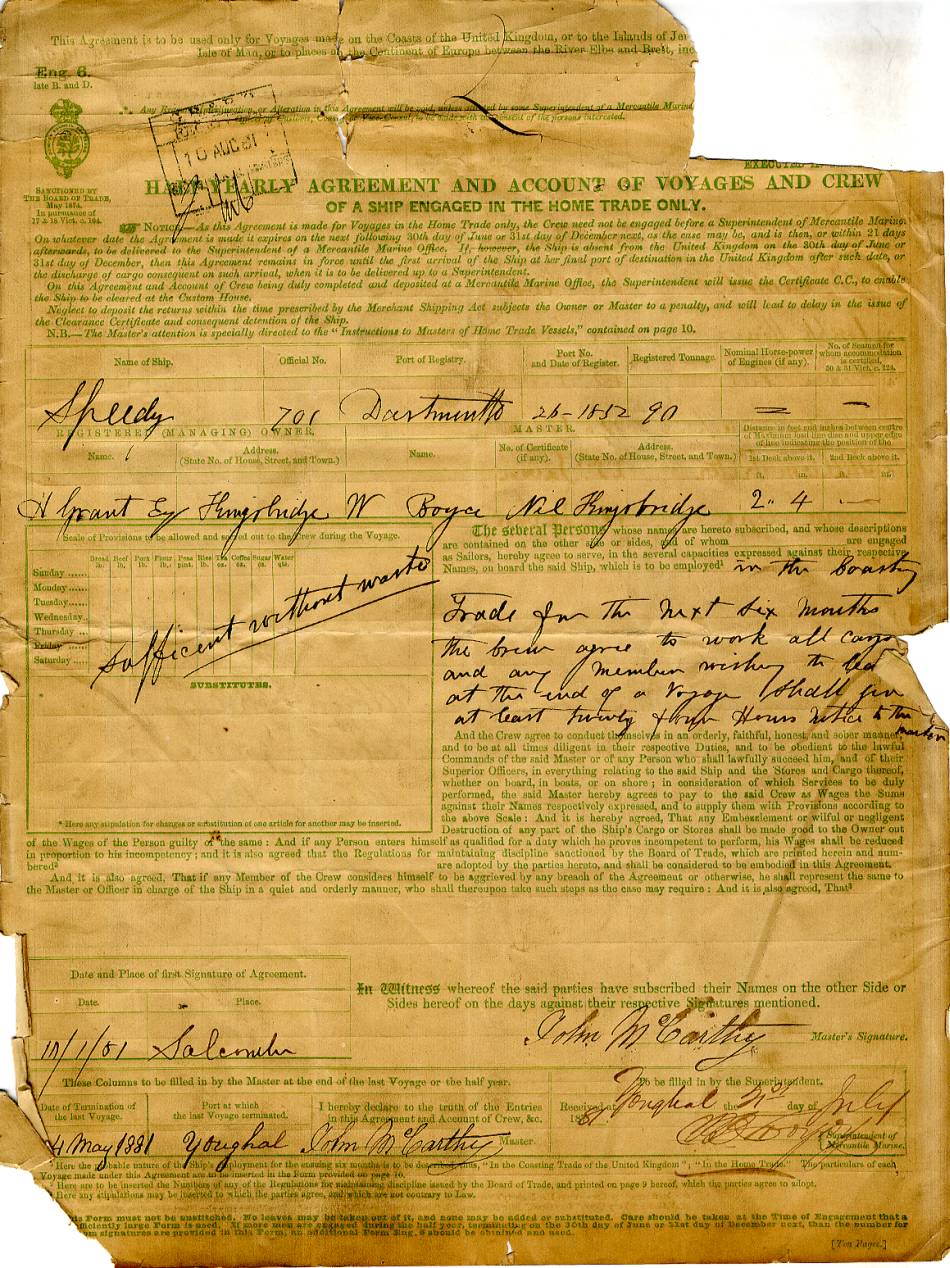 This Agreement is to be used only for Voyages made on the Coasts of the United Kingdom, or to the Islands of
Isle of Man, or to places on the Continent of Europe between the River Elbe and Brest, inc
Eng. 6.
late B. and D.
Any Erasure, Interlineation, or Alteration in this Agreement will be void, unless attested by some Superintendent of a Mercantile Marine
to be made with the consent of the persons interested.
10 AUG 81
SANCTIONED BY
THE BOARD OF TRADE,
May 1874.
In pursuance of
17 & 18 Vict. c. 104.
HALF-YEARLY AGREEMENT AND ACCOUNT OF VOYAGES AND CREW
OF A SHIP ENGAGED IN THE HOME TRADE ONLY.
NOTICE.—As this Agreement is made for Voyages in the Home Trade only, the Crew need not be engaged before a Superintendent of Mercantile Marine.
On whatever date the Agreement is made it expires on the next following 30th day of June or 31st day of December next, as the case may be, and is then, or within 21 days
afterwards, to be delivered to the Superintendent of a Mercantile Marine Office. If, however, the Ship is absent from the United Kingdom on the 30th day of June or
31st day of December, then this Agreement remains in force until the first arrival of the Ship at her final port of destination in the United Kingdom after such date, or
the discharge of cargo consequent on such arrival, when it is to be delivered up to a Superintendent.
On this Agreement and Account of Crew being duly completed and deposited at a Mercantile Marine Office, the Superintendent will issue the Certificate C.C., to enable
the Ship to be cleared at the Custom House.
Neglect to deposit the returns within the time prescribed by the Merchant Shipping Act subjects the Owner or Master to a penalty, and will lead to delay in the issue of
the Clearance Certificate and consequent detention of the Ship.
N.B.—The Master's attention is specially directed to the "Instructions to Masters of Home Trade Vessels," contained on page 10.
Name of Ship. Official No. Port of Registry. Port No. and Date of Register. Registered Tonnage. Nominal Horse-power of Engines (if any). No. of Seamen for whom accommodation is certified, 30 & 31 Vict. c. 124.
Speedy 701 Dartmouth 26-1852 90 = –
REGISTERED (MANAGING) OWNER. MASTER. Distance in feet and inches between centre of Maximum load line disc and upper edge of line indicating the position of the
Name. Address. (State No. of House, Street, and Town.) Name. No. of Certificate (if any). Address. (State No. of House, Street, and Town.) 1st Deck above it. 2nd Deck above it.
ft. in. ft. in.
H Grant Esq Kingsbridge W Boyce Nil Kingsbridge 2" 4 –
Scale of Provisions to be allowed and served out to the Crew during the Voyage.
Bread lb. Beef lb. Pork lb. Flour lb. Peas pint. Rice lb. Tea oz. Coffee oz. Sugar oz. Water qts.
Sunday
Monday
Tuesday
Wednesday
Thursday
Friday
Saturday
sufficent without waste
SUBSTITUTES.
* Here any stipulation for changes or substitution of one article for another may be inserted.
The Several Persons whose names are hereto subscribed, and whose descriptions
are contained on the other side or sides, and of whom are engaged
as Sailors, hereby agree to serve, in the several capacities expressed against their respective
Names, on board the said Ship, which is to be employed¹ in the Coasting
Trade for the next six months
the crew agree to work all cargo
and any member wishing to
at the end of a Voyage shall give
at least twenty four Hours notice to the
master
And the Crew agree to conduct themselves in an orderly, faithful, honest, and sober manner,
and to be at all times diligent in their respective Duties, and to be obedient to the lawful
Commands of the said Master or of any Person who shall lawfully succeed him, and of their
Superior Officers, in everything relating to the said Ship and the Stores and Cargo thereof,
whether on board, in boats, or on shore; in consideration of which Services to be duly
performed, the said Master hereby agrees to pay to the said Crew as Wages the Sums
against their Names respectively expressed, and to supply them with Provisions according to
the above Scale: And it is hereby agreed, That any Embezzlement or wilful or negligent
Destruction of any part of the Ship's Cargo or Stores shall be made good to the Owner out
of the Wages of the Person guilty of the same: And if any Person enters himself as qualified for a duty which he proves incompetent to perform, his Wages shall be reduced
in proportion to his incompetency; and it is also agreed that the Regulations for maintaining discipline sanctioned by the Board of Trade, which are printed herein and num-
bered² are adopted by the parties hereto, and shall be considered to be embodied in this Agreement.
And it is also agreed, That if any Member of the Crew considers himself to be aggrieved by any breach of the Agreement or otherwise, he shall represent the same to
the Master or Officer in charge of the Ship in a quiet and orderly manner, who shall thereupon take such steps as the case may require: And it is also agreed, That³
Date and Place of first Signature of Agreement.
Date. Place.
In Witness whereof the said parties have subscribed their Names on the other Side or
Sides hereof on the days against their respective Signatures mentioned.
John McCarthy Master's Signature.
/1/81 Salcombe
These Columns to be filled in by the Master at the end of the last Voyage or the half year.
To be filled in by the Superintendent.
Date of Termination of the last Voyage. Port at which the last Voyage terminated. I hereby declare to the truth of the Entries in this Agreement and Account of Crew, &c.
Received at Youghal the day of July
4 May 1881 Youghal John McCarthy Master.
Superintendent of Mercantile Marine.
¹ Here the probable nature of the Ship's employment for the ensuing six months is to be described, thus, "In the Coasting Trade of the United Kingdom"; "In the Home Trade." The particulars of each
Voyage made under this Agreement are to be inserted in the Form provided on page 10.
Here are to be inserted the Numbers of any of the Regulations for maintaining discipline issued by the Board of Trade, and printed on page 9 hereof, which the parties agree to adopt.
Here any stipulations may be inserted to which the parties agree, and which are not contrary to Law.
This Form must not be unstitched. No leaves may be taken out of it, and none may be added or substituted. Care should be taken at the Time of Engagement that a
sufficiently large Form is used. If more men are engaged during the half year, terminating on the 30th day of June or 31st day of December next, than the number for
signatures are provided in this Form, an additional Form Eng. 6 should be obtained and used.
[Ten Pages.]